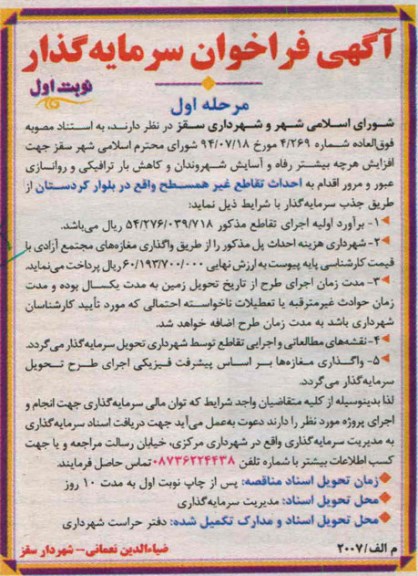 آگهی فراخوان سرمایه‌گذار
نوبت اول
مرحله اول
شورای اسلامی شهر و شهرداری سقز در نظر دارند، به استناد مصوبه
فوق‌العاده شماره ۴/۲۶۹ مورخ ۹۴/۰۷/۱۸ شورای محترم اسلامی شهر سقز جهت
افزایش هرچه بیشتر رفاه و آسایش شهروندان و کاهش بار ترافیکی و روانسازی
عبور و مرور اقدام به احداث تقاطع غیر همسطح واقع در بلوار کردستان از
طریق جذب سرمایه‌گذار با شرایط ذیل نماید:
۱- برآورد اولیه اجرای تقاطع مذکور ۵۴/۲۷۶/۰۳۹/۷۱۸ ریال می‌باشد.
۲- شهرداری هزینه احداث پل مذکور را از طریق واگذاری مغازه‌های مجتمع آزادی با
قیمت کارشناسی پایه پیوست به ارزش نهایی ۶۰/۱۹۳/۷۰۰/۰۰۰ ریال پرداخت می‌نماید.
۳- مدت زمان اجرای طرح از تاریخ تحویل زمین به مدت یکسال بوده و مدت
زمان حوادث غیرمترقبه یا تعطیلات ناخواسته احتمالی که مورد تأیید کارشناسان
شهرداری باشد به مدت زمان طرح اضافه خواهد شد.
۴- نقشه‌های مطالعاتی و اجرایی تقاطع توسط شهرداری تحویل سرمایه‌گذار می‌گردد.
۵- واگذاری مغازه‌ها بر اساس پیشرفت فیزیکی اجرای طرح تحویل
سرمایه‌گذار می‌گردد.
لذا بدینوسیله از کلیه متقاضیان واجد شرایط که توان مالی سرمایه‌گذاری جهت انجام و
اجرای پروژه مورد نظر را دارند دعوت به‌عمل می‌آید جهت دریافت اسناد سرمایه‌گذاری
به مدیریت سرمایه‌گذاری واقع در شهرداری مرکزی، خیابان رسالت مراجعه و یا جهت
کسب اطلاعات بیشتر با شماره تلفن ۰۸۷۳۶۲۲۴۴۳۸ تماس حاصل فرمایند.
زمان تحویل اسناد مناقصه: پس از چاپ نوبت اول به مدت ۱۰ روز
محل تحویل اسناد: مدیریت سرمایه‌گذاری
محل تحویل اسناد و مدارک تکمیل شده: دفتر حراست شهرداری
م الف/۲۰۰۷
ضیاءالدین نعمانی – شهردار سقز